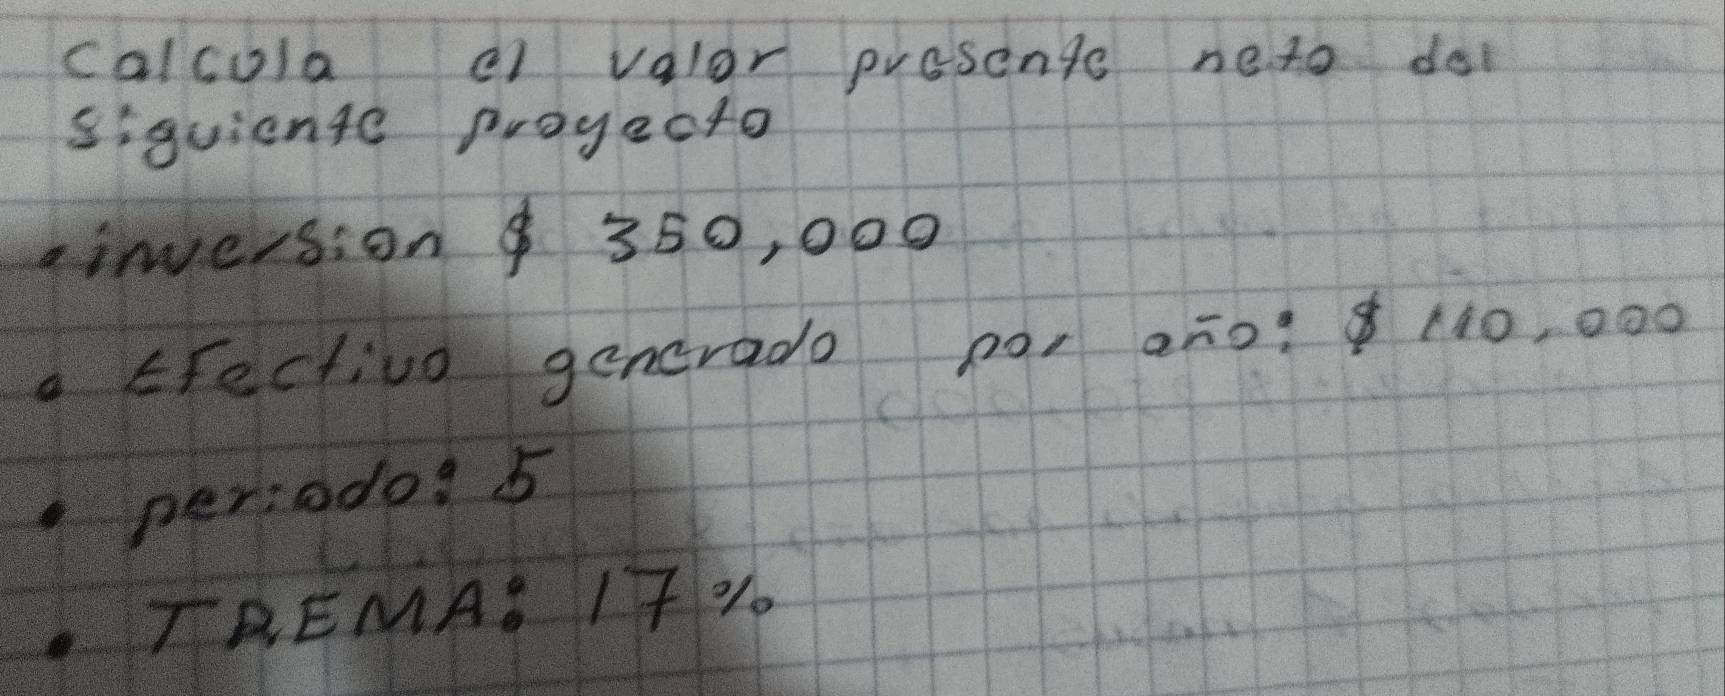 Calcula el valor presente neto del
siguiente proyecto
• inversion $ 350,000
• Efectivo generado por año: $ 110,000
• periodo: 5
• TREMA: 17 %